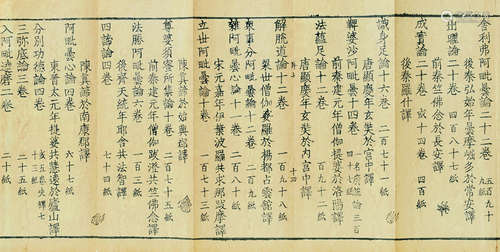 舍利弗阿毗曇二十二卷
後秦弘始年曇摩崛多於常安譯
出曜論二十卷 四百八十七紙
前秦竺佛念於長安譯
成實論 二十四卷 四百紙
後秦羅什譯
識身足論十六卷 二百七十一紙
唐顯慶年玄奘於宮中譯
鞞婆沙阿毗曇十四卷
前秦建元年僧伽提婆於洛陽譯
法蘊足論十二卷 一百九十二紙
唐顯慶年玄奘於内宮中譯
解脫道論十二卷 一百九十八紙
梁世僧伽婆羅於楊都占雲館譯
衆事分阿毗曇論十二卷
雜阿毗曇心論十一卷 二百九紙
宋元嘉年伊葉波羅共求那跋摩譯
立世阿毗曇論十卷 一百七十三紙
陳真諦於始興郡譯
尊婆須蜜所集論十卷 二百七十五紙
前秦建元年僧伽跋澄共竺佛念譯
法勝阿毗曇論六卷 一百二十紙
後齊天統年耶舍共法智譯
四諦論四卷 七十五紙
陳真諦於南康郡譯
阿毗曇心論四卷 六十七紙
東晉太元年提婆共慧遠於廬山譯
分別功德論四卷
三彌底論三卷 二十五紙
入阿毗達磨二卷 二十紙